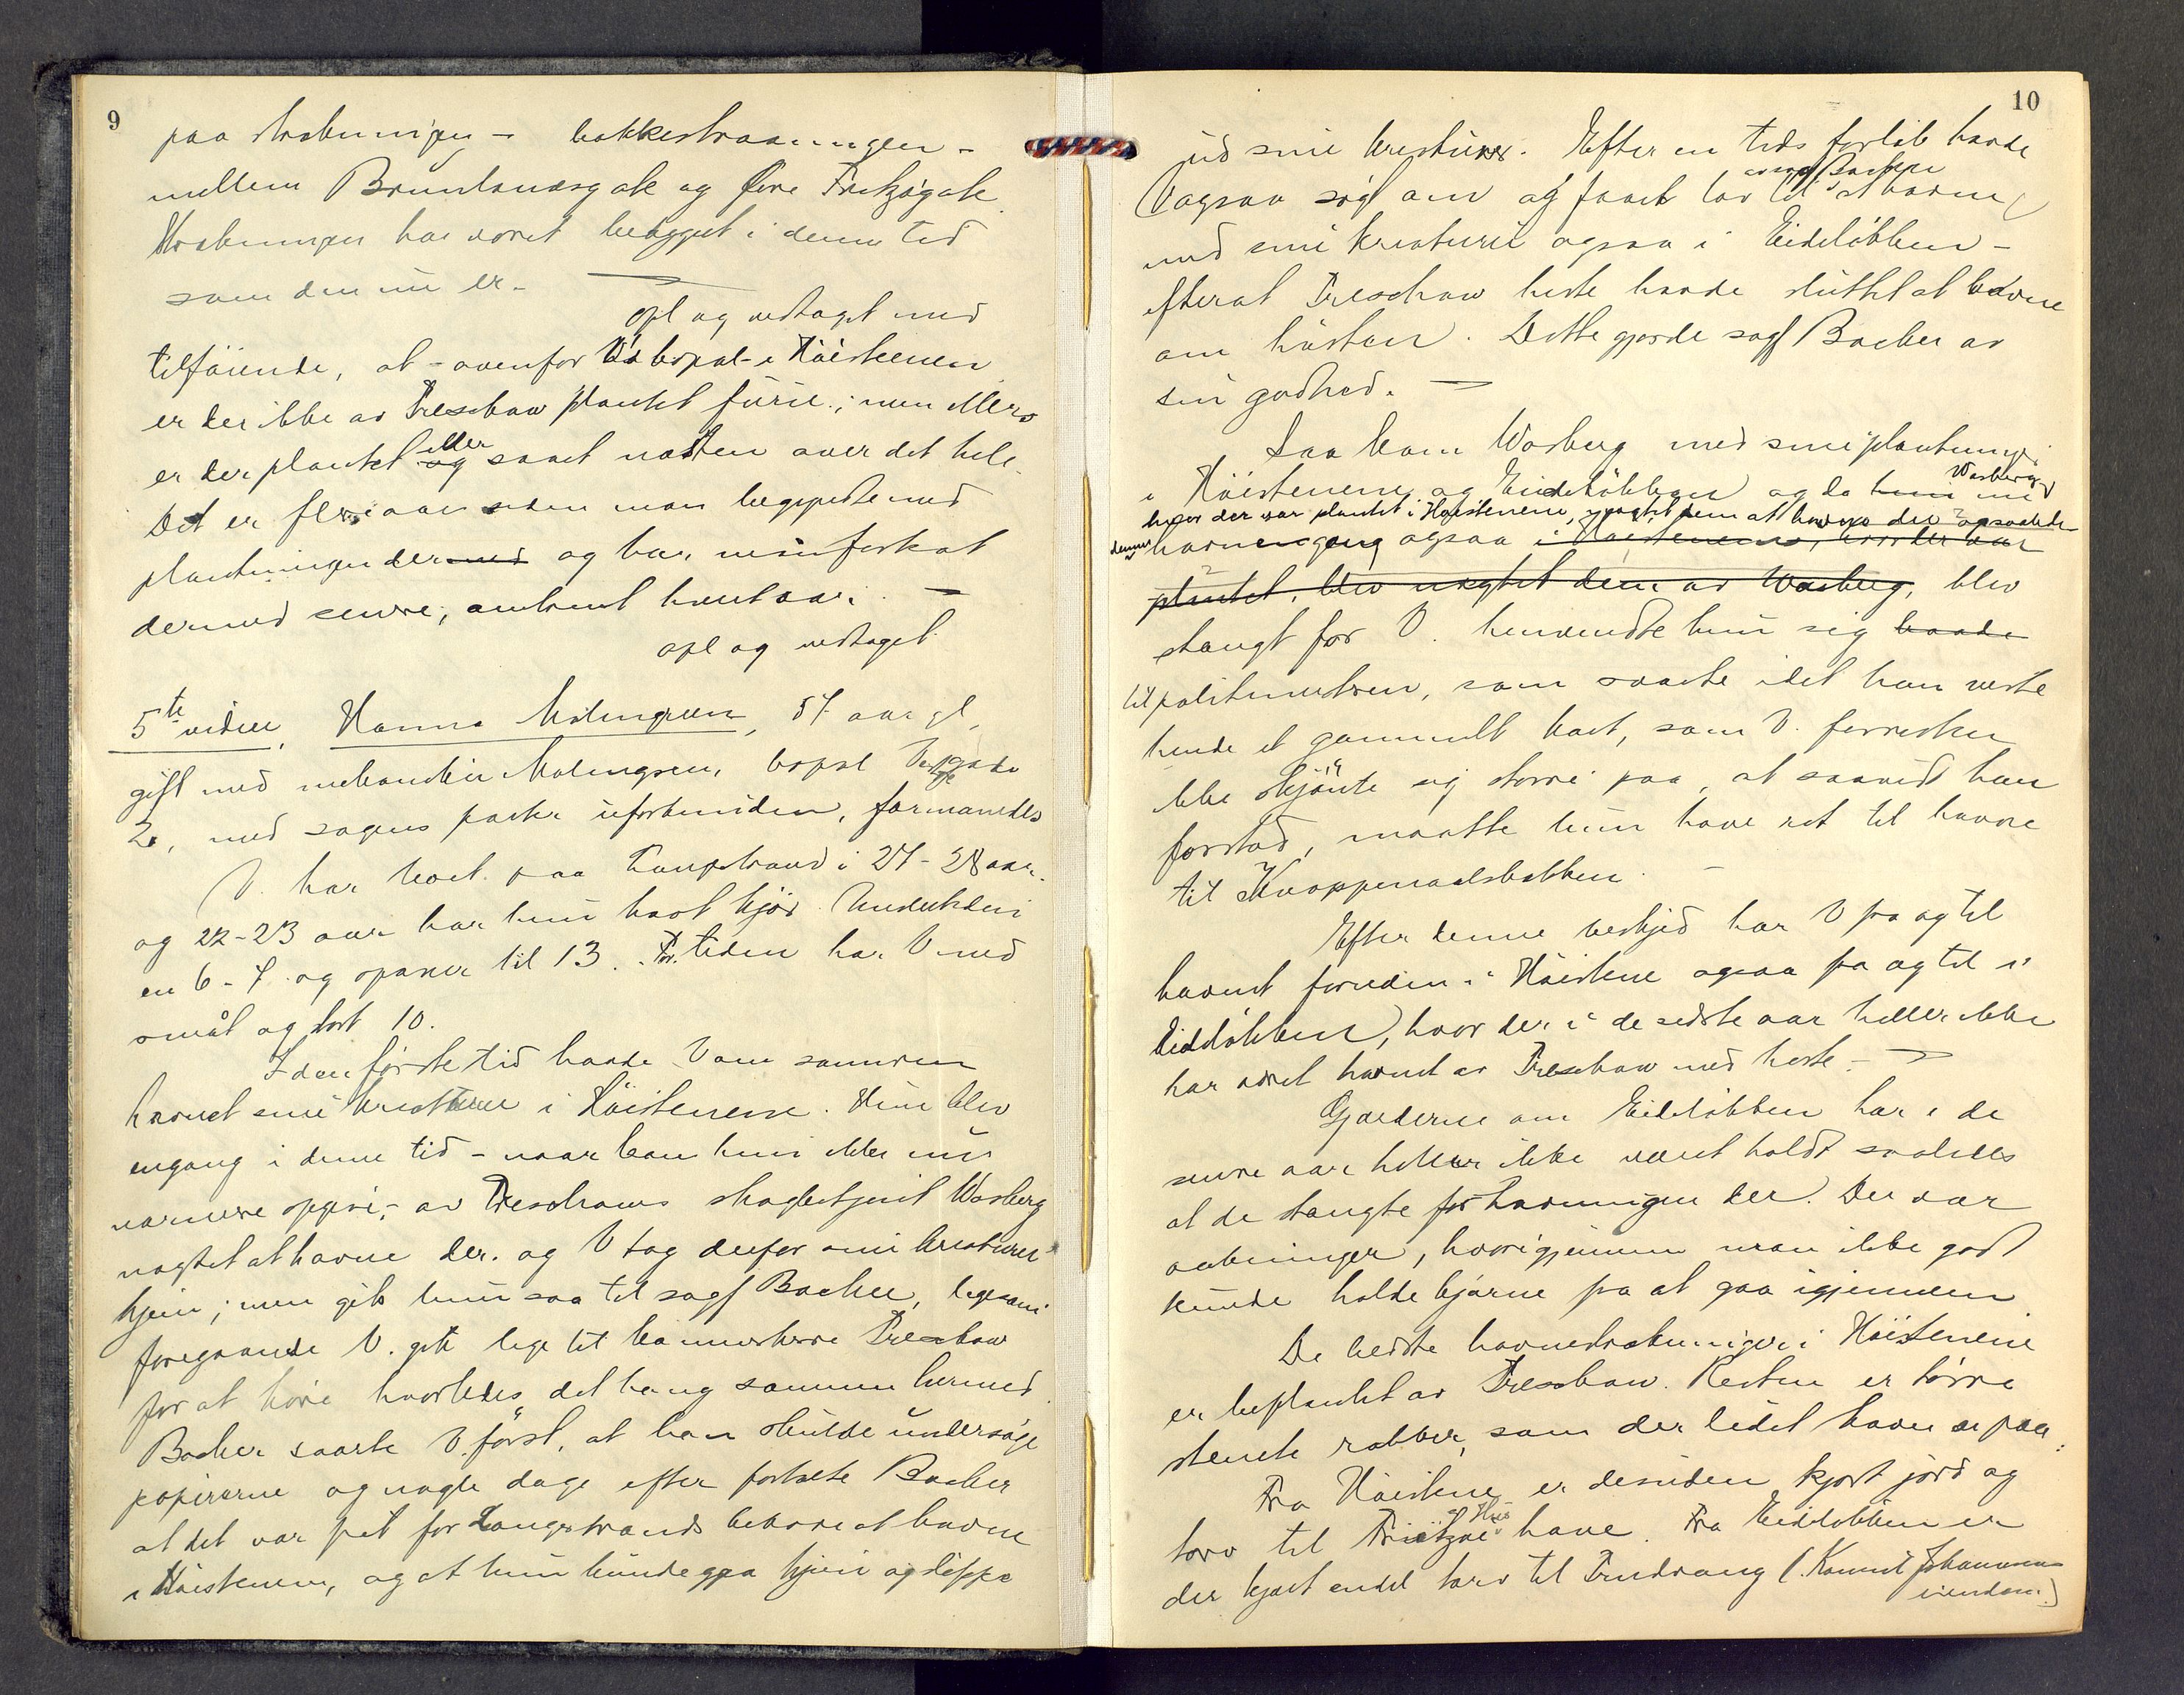 9
paa strækningen - bakkestraaningen -
mellem Brunlanæsgate og Øvre Fritzøgate
Strækningen har været bebygget i denne tid
som den nu er.
opl og vedtaget med
tilføiende, at - ovenfor V's bopæl - i Høistenene
er der ikke av Treschow plantet furu; men ellers
er der plantet eller saaet næsten over det hele.
Det er flere aar siden man begyndte med
plantningen der og har man fortsat
dermed senere, omtrent hvert aar.
opl og vedtaget
5te vidne, Hanna Malmgreen, 57 aar gl,
gift med mekaniker Malmgreen, bopæl
2, med sagens parter uforbunden, formanedes
V. har boet paa Langestrand i 27-28 aar.
og 22-23 aar har hun havt kjør. Undertiden
en 6-7 og opover til 13. For tiden har V med
småt og stort 10.
I den første tid havde V om sommeren
havnet sine kreature i Høistenene. Hun blev
engang i denne tid - naar kan hun ikke nu
nærmere opgi - av Treschows skogbetjent Wasberg
nægtet at havne der. og V tog derfor sine kreaturer
hjem; men gik hun saa til sagf Backer, ligesom
foregaaende V. gik lige til kammerherre Treschow
for at høre hvorledes det hang sammen hermed
Backer svarte V. først, at han skulde undersøge
papirerne og nogle dage efter fortalte Backer
at det var frit for Langestrands beboere at havne
i Høistenene, og at hun kunde gaa hjem og slippe
10
ud sine kreaturer. Efter en tids forløb havde
V ogsaa søgt om og faaet lov til av sagf Backer at havne
med sine kreaturer ogsaa i Eideløkken -
efterat Treschow heste havde sluttet at havne
om høsten. Dette gjorde sagf Backer av
sin godhed.
Saa kom Wasberg med sine plantninger
i Høistenene og Eideløkken og da hun nu Wasberg
hvor der var plantet i Høistenene, nægtet dem at havne der
denne havnegang ogsaa i Høistenene, hvor der var
plantet, blev nægtet dem av Wasberg, blev
stængt for V. henvendte hun sig baade
til politimesteren, som svarte idet han viste
hende et gammelt kart, som V. forresten
ikke skjønte sig større paa, at saavidt han
forstod, maatte hun have ret til havne
til Knappenaalsbakken.
Efter denne beskjed har V fra og til
havnet foruden i Høistene ogsaa fra og til i
Eideløkken, hvor der i de sidste aar heller ikke
har været havnet av Treschow med heste.
Gjærderne om Eideløkken har i de
senere aar heller ikke været holdt saaledes
at de stængte for havningen der. Der var
aabninger, hvorigjennem man ikke godt
kunde holde kjørne fra at gaa igjennem.
De bedste havnestrækninger i Høistenene
er beplantet av Treschow. Resten er tørre
stenete rabber, som der lidet havn er paa.
Fra Høistene er desuden kjørt jord og
torv til Fritzøe Hus have. Fra Eideløkken er
der kjørt endel torv til Fredrang (Konsul Johannesens
eiendom.)